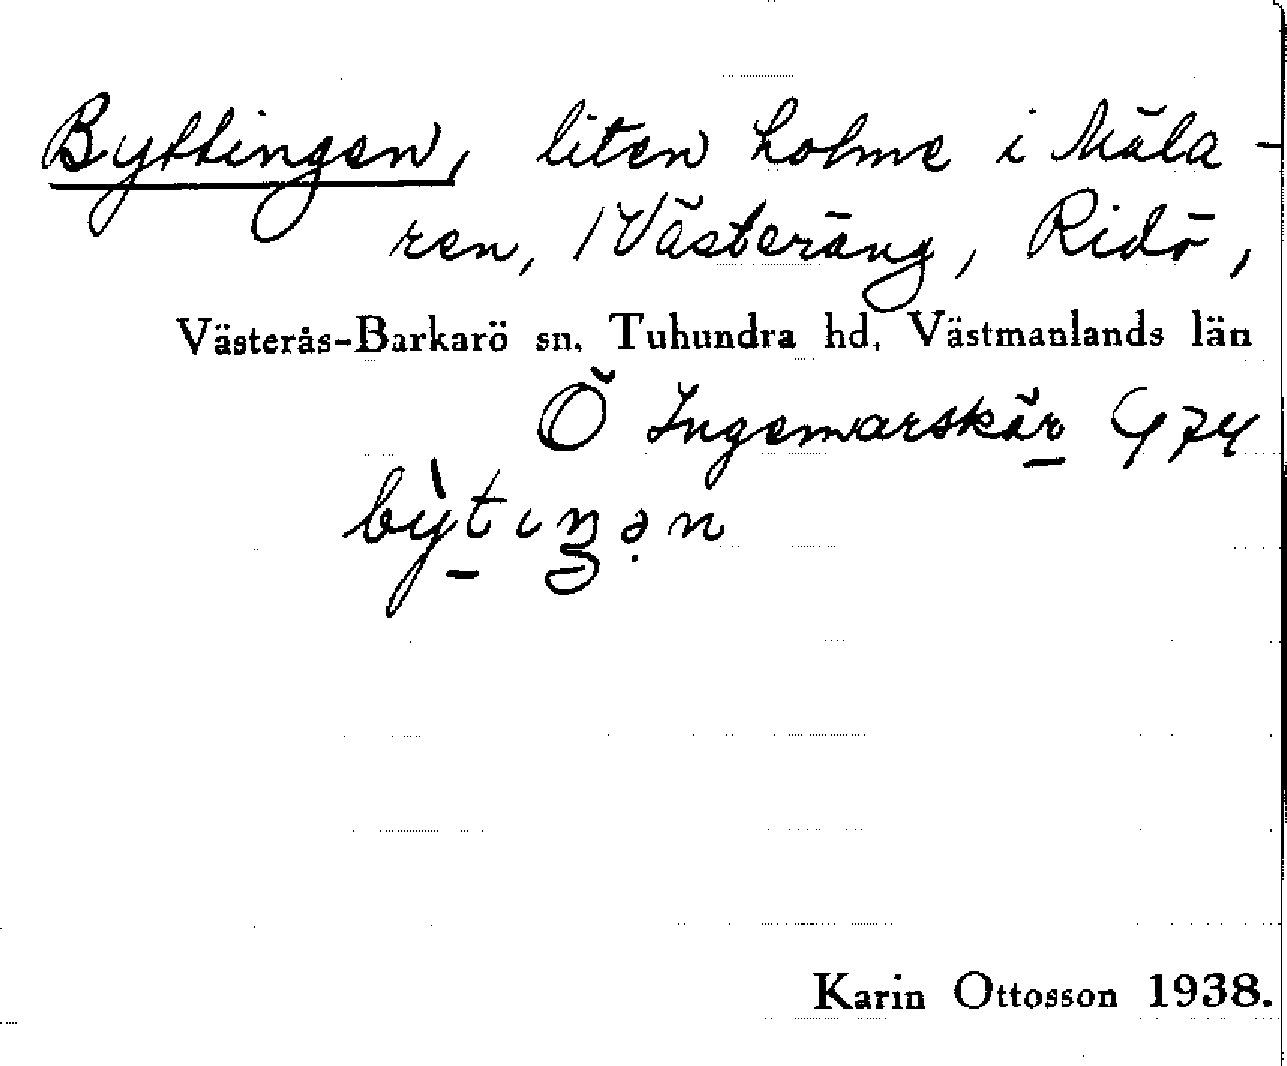 Byttingen, liten holme i Mäla-
ren, Västeräng, Ridö,
Västerås-Barkarö sn, Tuhundra hd, Västmanlands län
Ö Ingemarskär G74
bỳtıŋən
Karin Ottosson 1938.